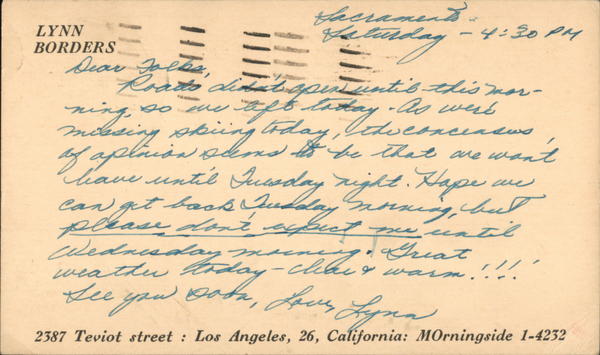 LYNN
BORDERS
Sacramento
Saturday - 4:30 PM
Dear Folks,
Roads didn't open until this mor-
ning, so we left today. As we're
missing skiing today, the concensus
of opinion seems to be that we won't
leave until Tuesday night. Hope we
can get back Tuesday morning, but
please don't expect me until
Wednesday morning. Great
weather today - clear & warm!!!!
See you soon, Love, Lynn
2387 Teviot street : Los Angeles, 26, California: MOrningside 1-4232